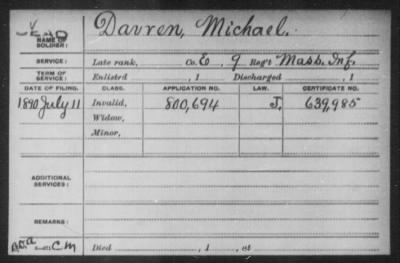 DEAD
Davren, Michael.
NAME OF
SOLDIER:
SERVICE: Late rank, Co. E, 9 Reg't Mass. Inf.
TERM OF
SERVICE: Enlisted , 1 Discharged , 1
DATE OF FILING. CLASS. APPLICATION NO. LAW. CERTIFICATE NO.
1890 July 11 Invalid, 800,694 J. 639,985
Widow,
Minor,
ADDITIONAL
SERVICES:
REMARKS:
C M Died , 1 , at